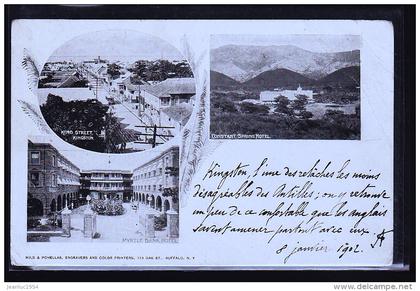 KING STREET,
KINGSTON
CONSTANT SPRING HOTEL
MYRTLE BANK HOTEL
Kingston, l'une des relâches les moins
désagréables des Antilles; on y retrouve
un peu de ce confortable que les anglais
savent amener partout avec eux.
8 janvier 1902.
ENGRAVERS AND COLOR PRINTERS, 114 OAK ST., BUFFALO, N. Y.
©lemail1954
http://www.delcampe.net